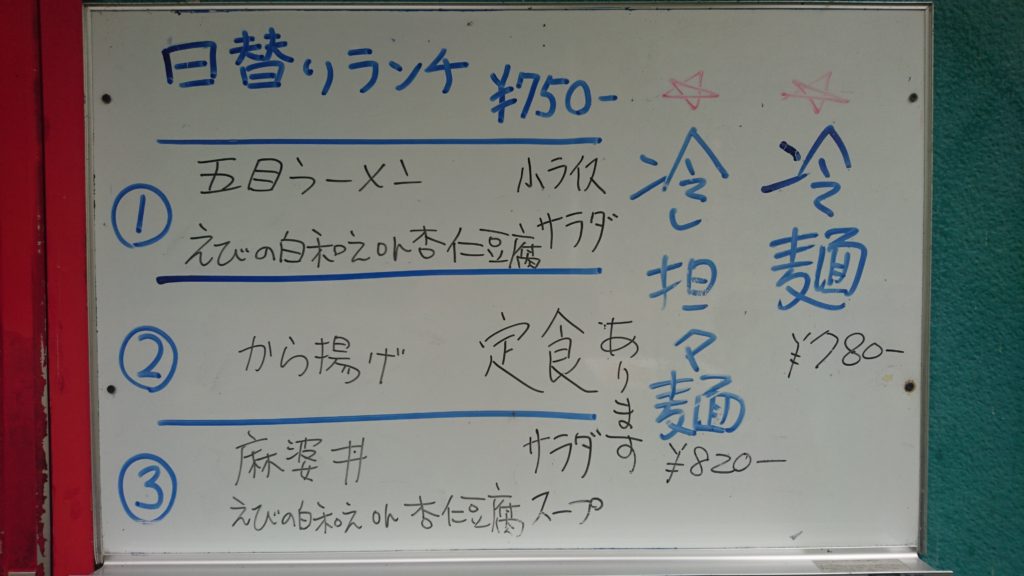 日替りランチ ¥750-
① 五目ラーメン 小ライス
えびの白和え or 杏仁豆腐 サラダ
② から揚げ 定食
③ 麻婆丼 サラダ
えびの白和え or 杏仁豆腐 スープ
あります
☆冷し担々麺
¥820-
☆冷麺
¥780-